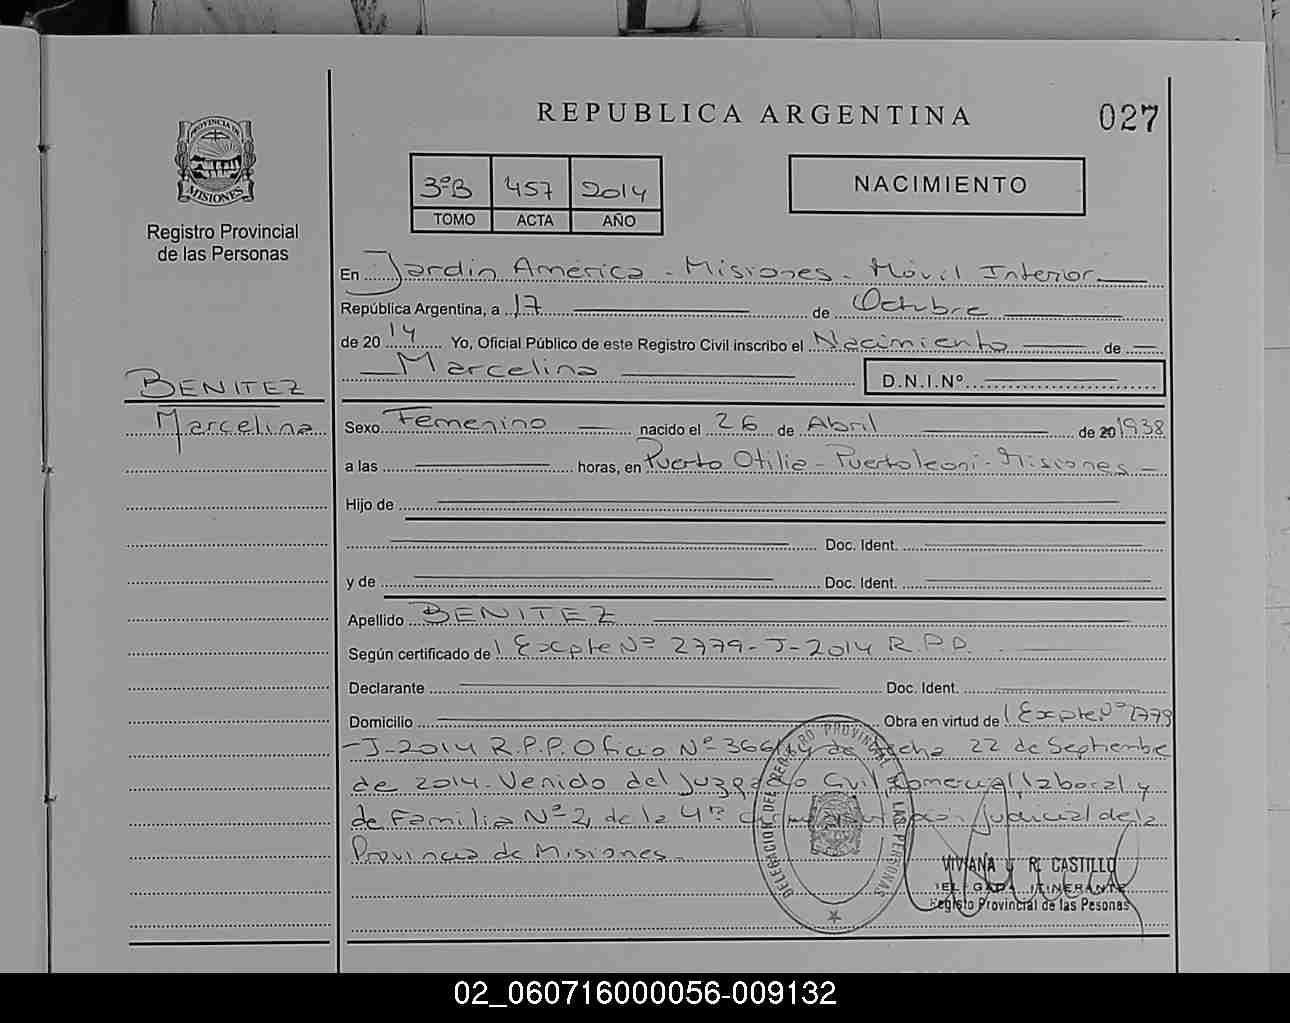 REPUBLICA ARGENTINA
027
PROVINCIA DE MISIONES
Registro Provincial
de las Personas
3ºB 457 2014
TOMO ACTA AÑO
NACIMIENTO
En Jardin América - Misiones - Móvil Interior
República Argentina, a 17 de Octubre
de 2014 Yo, Oficial Público de este Registro Civil inscribo el Nacimiento de
Marcelina
D.N.I.Nº
BENITEZ
Marcelina
Sexo Femenino nacido el 26 de Abril de 20 1938
a las horas, en Puerto Otilia - Puerto leoni - Misiones
Hijo de
Doc. Ident.
y de Doc. Ident.
Apellido BENITEZ
Según certificado de Expte Nº 2779-J-2014 R.P.P.
Declarante Doc. Ident.
Domicilio Obra en virtud de Expte Nº 2779
-J-2014 R.P.P. Oficio Nº 366/14 de fecha 22 de Septiembre
de 2014. Venido del Juzgado Civil, Comercial, laboral y
de Familia Nº 2, de la 4ª Circunscripción Judicial de la
Provincia de Misiones.
DELEGACION DEL REGISTRO PROVINCIAL DE LAS PERSONAS
VIVIANA R. CASTILLO
DELEGADA ITINERANTE
Registo Provincial de las Pesonas
02_060716000056-009132